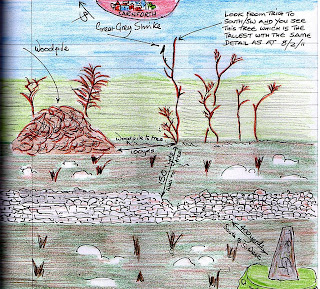 CARNFORTH
Great Grey Shrike
LOOK FROM TRIG TO
SOUTH/SW AND YOU SEE
THIS TREE WHICH IS THE
TALLEST WITH THE SAME
DETAIL AS AT 8/2/11
Woodpile
Woodpile to tree
100yds